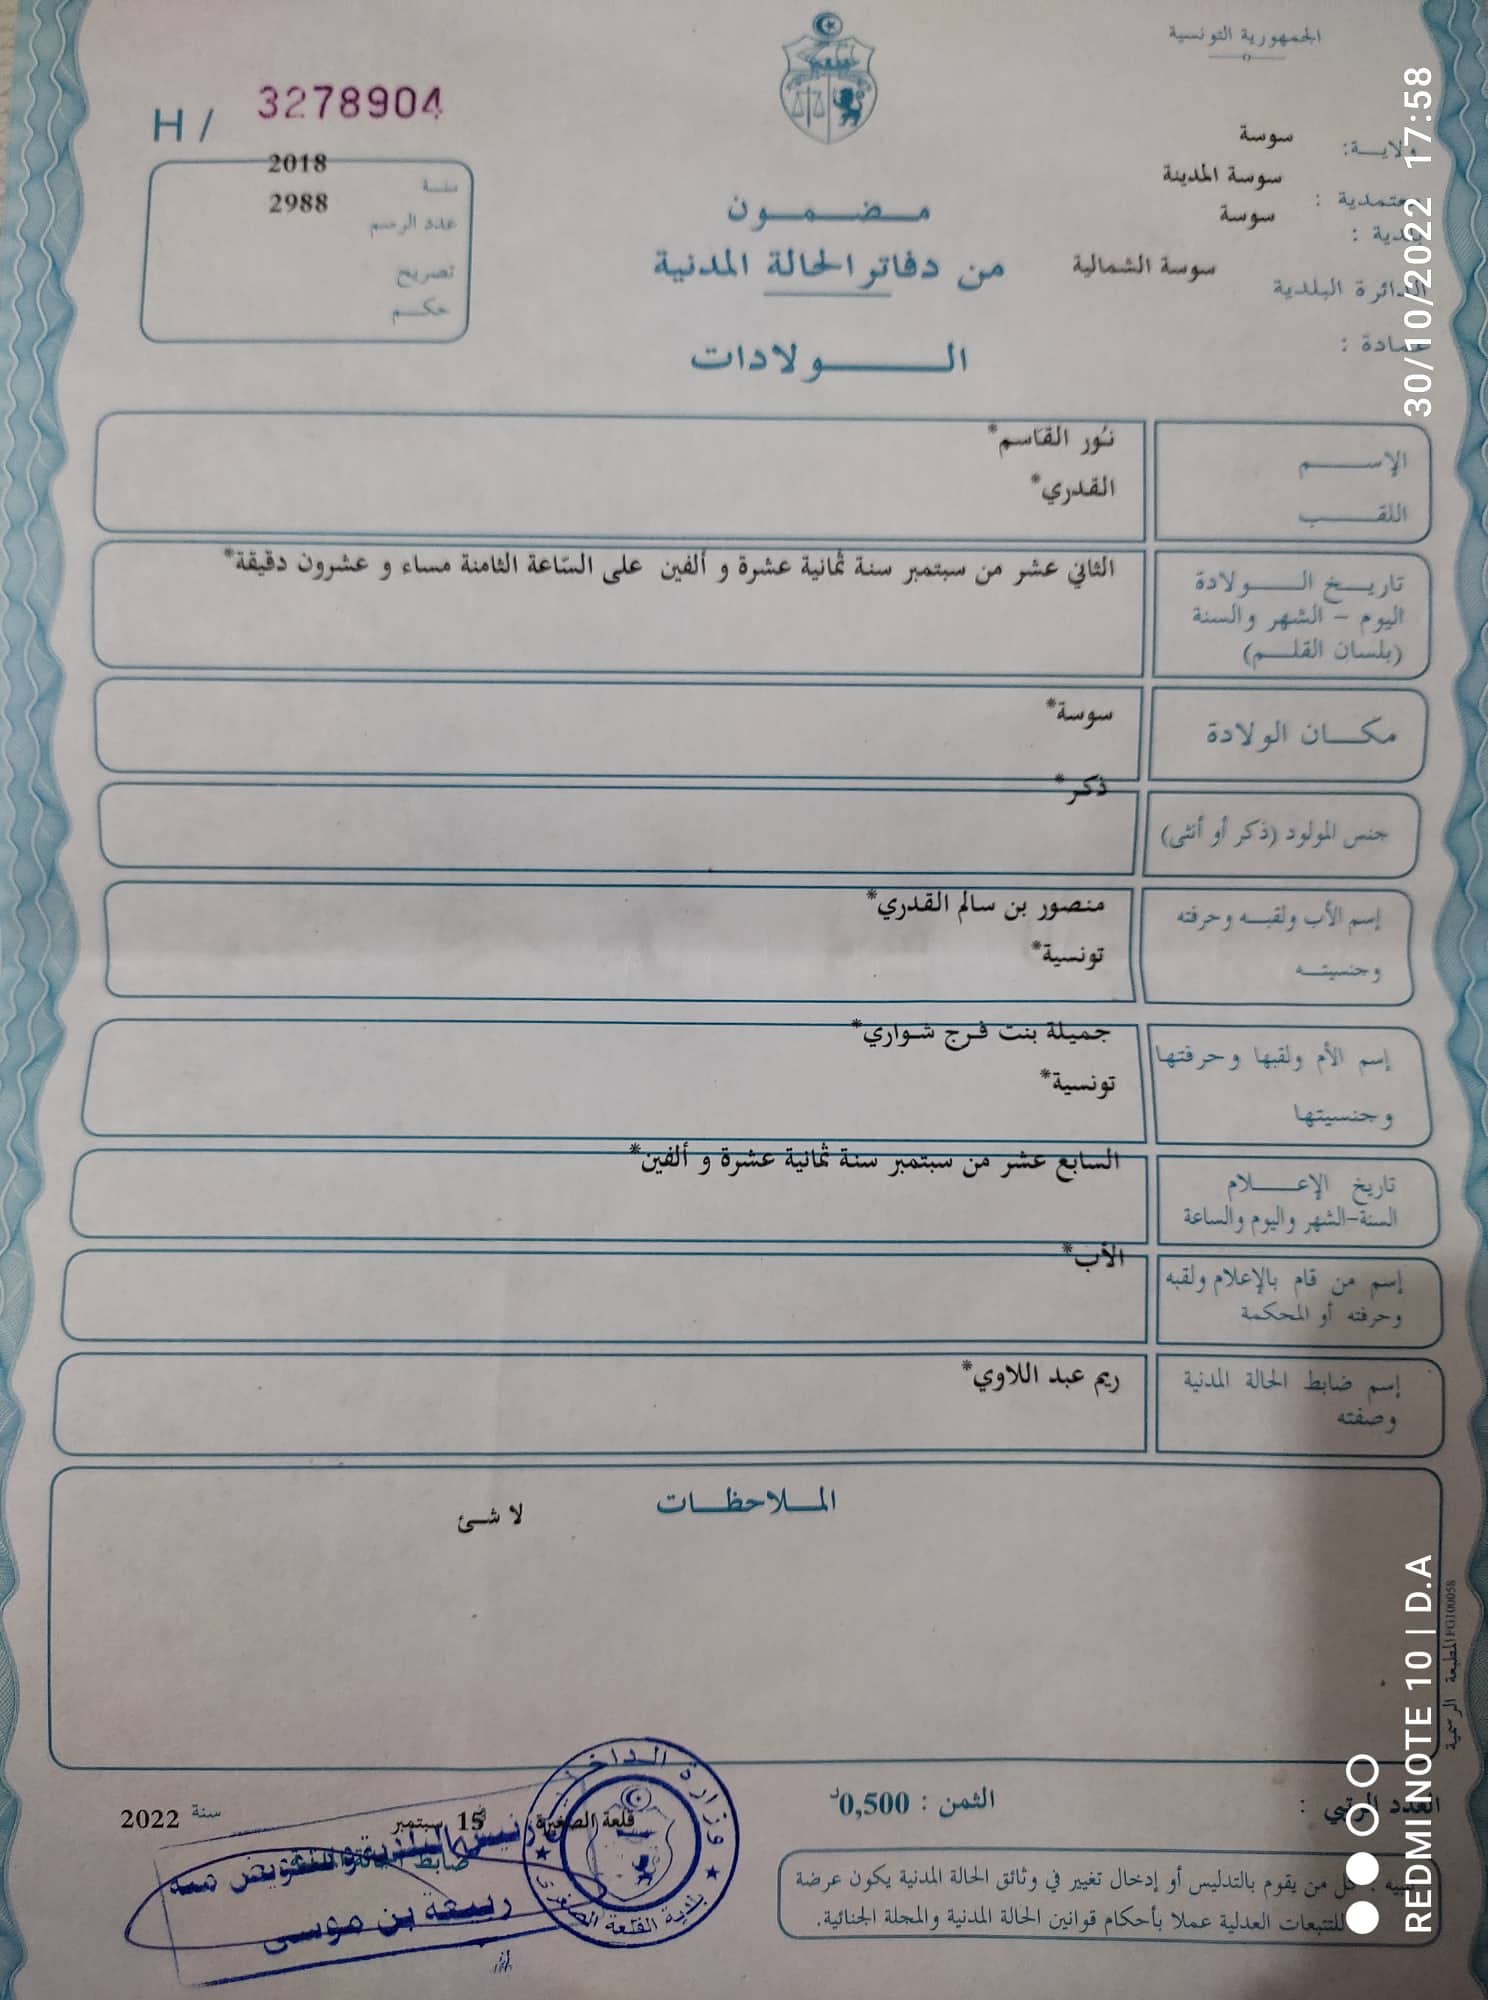 الجمهورية التونسية
H / 3278904
ولاية: سوسة
معتمدية : سوسة المدينة
بلدية : سوسة
الدائرة البلدية سوسة الشمالية
عمادة :
سنة 2018
عدد الرسم 2988
تصريح
حكم
مضمون
من دفاتر الحالة المدنية
الولادات
الإسم نُور القَاسم*
اللقب القدري*
تاريخ الولادة
اليوم - الشهر والسنة
(بلسان القلم)
الثاني عشر من سبتمبر سنة ثمانية عشرة و ألفين على السّاعة الثامنة مساء و عشرون دقيقة*
مكان الولادة سوسة*
جنس المولود (ذكر أو أنثى) ذكر*
إسم الأب ولقبه وحرفته
وجنسيته
منصور بن سالم القدري*
تونسية*
إسم الأم ولقبها وحرفتها
وجنسيتها
جميلة بنت فرج شواري*
تونسية*
تاريخ الإعلام
السنة-الشهر واليوم والساعة
السابع عشر من سبتمبر سنة ثمانية عشرة و ألفين*
إسم من قام بالإعلام ولقبه
وحرفته أو المحكمة
الأب*
إسم ضابط الحالة المدنية
وصفته
ريم عبد اللاوي*
الملاحظات
لا شئ
المطبعة الرسمية
العدد الرتبي :
الثمن : 0,500د
قلعة الصغيرة في 15 سبتمبر سنة 2022
ضابط الحالة
رئيس البلدية وبتفويض منه
ربيعة بن موسى
وزارة الداخلية
بلدية القلعة الصغرى
تنبيه : كل من يقوم بالتدليس أو إدخال تغيير في وثائق الحالة المدنية يكون عرضة
للتتبعات العدلية عملا بأحكام قوانين الحالة المدنية والمجلة الجنائية.
30/10/2022 17:58
REDMI NOTE 10 | D.A